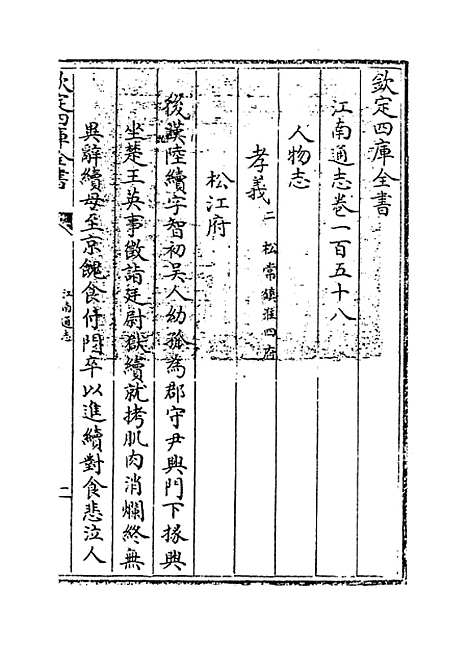 欽定四庫全書
江南通志卷一百五十八
人物志
孝義二 松常鎮淮四府
松江府
後漢陸續字智初吳人幼孤為郡守尹興門下掾興
坐楚王英事徵詣廷尉獄續就拷肌肉消爛終無
異辭續母至京餽食侍門卒以進續對食悲泣人
欽定四庫全書
江南通志